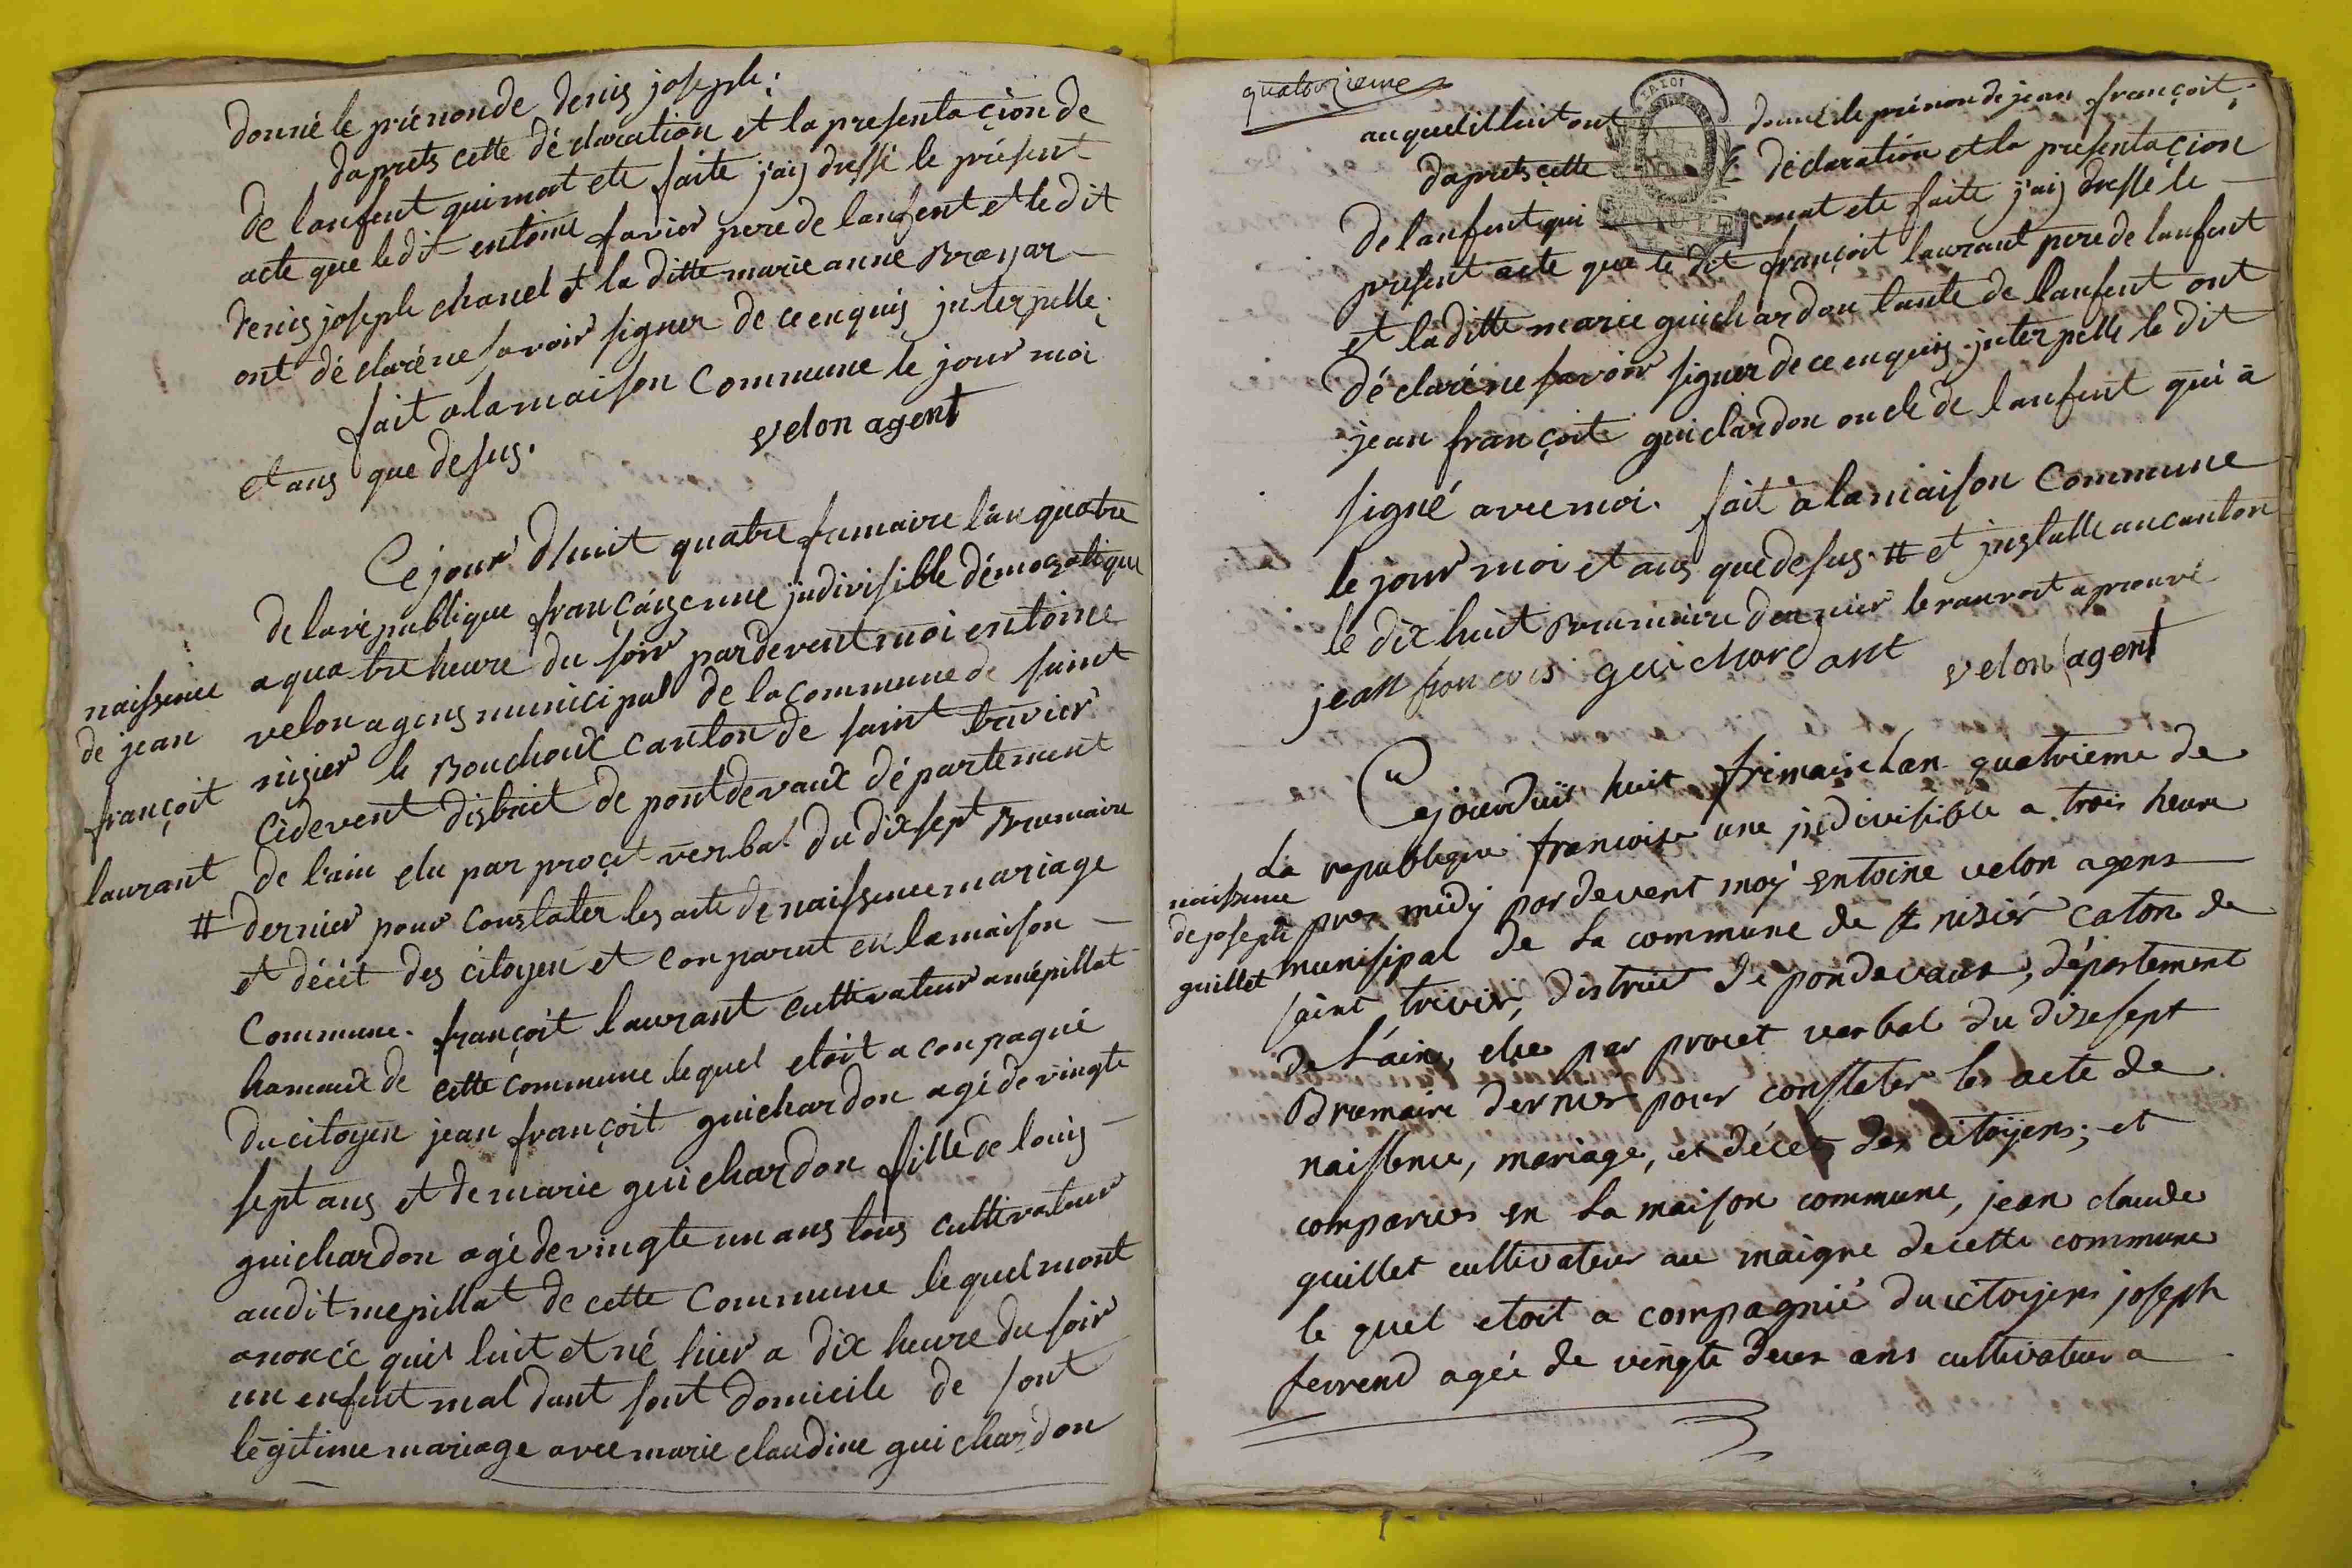 donné le prénon de denis joseph;
daprets cette déclaration et la presentacion de
de lanfent qui mat ete faite j'aij dressé le présent
acte que ledit entoine favier pere de lanfent et le dit
denis joseph chanel et la ditte marie anne Brayar
ont déclaré ne savoir signer de ce enquis jnterpelle;
fait a la maison Commune le jour moi
et ans que desus. velon agent
Ce jour d'huit quatre frimaire l'an quatre
de la république françáise une jndivisible démocratique
a quatre heure du soir pardevent moi entoine
velon agens municipal de la commune de saint
nisier le Bouchoux canton de saint trivier
Cidevent distrait de pontdevaux département
de l'ain elu par procet verbal du dix sept Brumaire
# dernier pour constater les acte de naissence mariage
et décét des citoyen et comparut en la maison
Commune. françoit laurant cultivateur a mépillat
hameaux de cette commune lequel etoit a compagné
du citoyen jean françoit guichardon agé de vingte
sept ans et de marie guichardon fille de louis
guichardon agé de vingte un ans tous cultivateur
audit mepillat de cette Commune lequel mont
anoncé quil luit et né hier a dix heure du soir
un enfent mal dant sont domicile de sont
légitime mariage avec marie claudine guichardon
naissence
de jean
françoit
laurant
quatorzieme
LA LOI
auquel il luit ont donné le prénon de jean françoit;
daprets cette déclaration et la presentacion
de lanfent qui mat ete faite j'aij dressé le
present acte que le dit françoit laurant pere de lanfent
et la ditte marie guichardon tante de lanfent ont
déclaré ne savoir signer de ce enquis jnterpelle le dit
jean françoit guichardon oncle de lanfent qui a
signé avec moi. fait a la maison Commune
le jour moi et ans que desus. # et jnstalle au canton
le dix huit Brumaire dernier le ranvoit aprouvé
jean francois guichardant velon agent
Cejourduit huit frimaire lan quatrieme de
La republique francoise une jndivisible a trois heure
pres midy pardevent moy entoine velon agens
munisipal de La commune de st nisiér caton de
saint trivir, distruit de pondevaux, département
de L'ain, elue par procet verbal du dixesept
Brumaire dernier pour constater les acte de
naissence, mariage, et décet des citoyens; et
comparues en La maison commune, jean claude
guillet cultivateur au maigne de cette commune
le quel etoit a compagnié du citoyen joseph
ferrend agée de vingte deux ans cultivateur a
naissence
de joseph
guillet